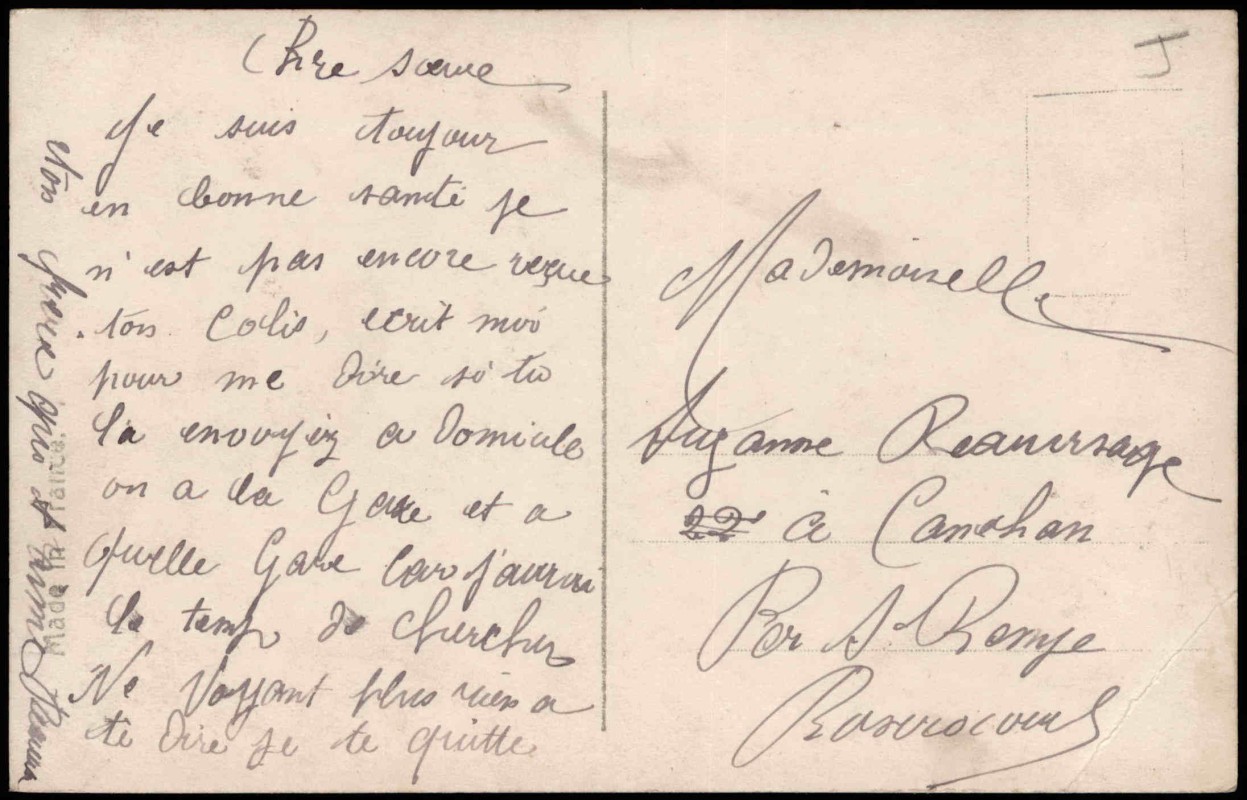 Chre sœure
Je suis toujour
en bonne santé je
n'est pas encore reçue
ton Colis, ecrit moi
pour me dire si tu
la envoyiez a domicile
on a la Gare et a
quelle Gare Car j'aurai
le temp de chercher
Ne Voyant plus rien a
te dire je te quitte
ton frere qui t aime
Made in France.
Mademoiselle
Suzanne Beauvisage
22 à Canehan
Par St Remye
Boscrocourt